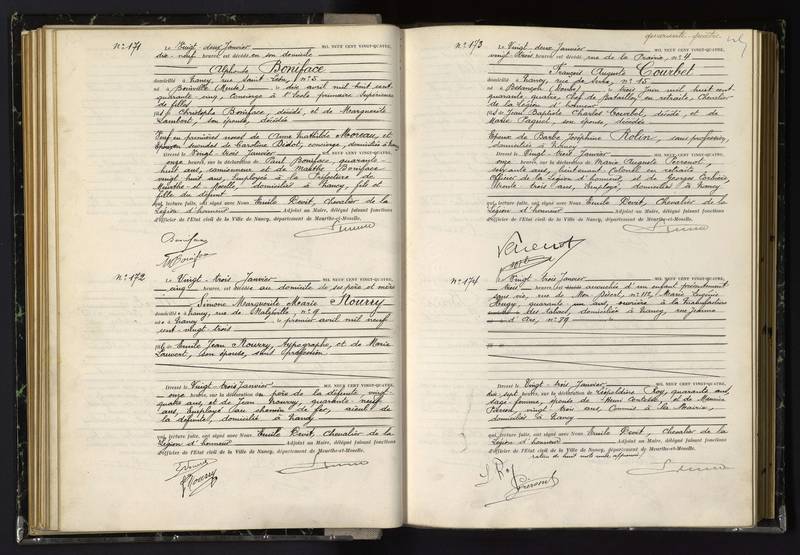 N° 171
Le Vingt-deux Janvier MIL NEUF CENT VINGT-QUATRE,
dix-neuf heures, est décédé en son domicile
Alphonse Boniface
domicilié à Nancy, rue Saint Léon, n° 5
né à Boinville (Meuse), le dix avril mil huit cent
quarante cinq, Concierge à l'Ecole primaire Supérieure
de filles
fils de Christophe Boniface, décédé, et de Marguerite
Lambert, son épouse, décédée
Veuf en premières noces de Anne Mathilde Moreau, et
Epoux en secondes de Caroline Didot, concierge, domiciliée à Nancy
Dressé le Vingt-trois Janvier MIL NEUF CENT VINGT-QUATRE,
onze heures, sur la déclaration de Paul Boniface, quarante-
huit ans, camionneur et de Marthe Boniface
vingt huit ans, Employée à la Préfecture de
Meurthe-et-Moselle, domiciliés à Nancy, fils et
fille du défunt
qui, lecture faite, ont signé avec Nous, Emile Devit, Chevalier de la
Légion d'honneur Adjoint au Maire, délégué faisant fonctions
d'Officier de l'Etat civil de la Ville de Nancy, département de Meurthe-et-Moselle.
Boniface
M Boniface
N° 172
Le Vingt-trois Janvier MIL NEUF CENT VINGT-QUATRE,
cinq heures, est décédée au domicile de ses père et mère
Simone Marguerite Marie Nourry
domiciliée à Nancy, rue de Malzéville, n° 9
née à Nancy, le premier avril mil neuf
cent-vingt trois
fille de Emile Jean Nourry, typographe, et de Marie
Lauvert, son épouse, sans profession
Dressé le Vingt-trois Janvier MIL NEUF CENT VINGT-QUATRE,
onze heures, sur la déclaration du père de la défunte, vingt
quatre ans, et de Jean Nourry, quarante-neuf
ans, Employé au chemin de fer, aïeul de
la défunte, domiciliés à Nancy
qui, lecture faite, ont signé avec Nous, Emile Devit, Chevalier de la
Légion d'honneur Adjoint au Maire, délégué faisant fonctions
d'Officier de l'Etat civil de la Ville de Nancy, département de Meurthe-et-Moselle.
Nourry
quarante-quatre
N° 173
Le Vingt deux Janvier MIL NEUF CENT VINGT-QUATRE,
vingt trois heures, est décédé, rue de la Prairie, n° 4
François Auguste Courbet
domicilié à Nancy, rue de Serre, n° 15
né à Besançon (Doubs), le trois Juin mil huit cent
quarante quatre, Chef de Bataillon en retraite, Chevalier
de la Légion d'honneur
fils de Jean Baptiste Charles Courbet, décédé, et de
son épouse, décédée
Epoux de Barbe Joséphine Rolin, sans profession,
domiciliée à Nancy
Dressé le Vingt-trois Janvier MIL NEUF CENT VINGT-QUATRE,
onze heures, sur la déclaration de Marie Auguste Perrenot,
soixante ans, Lieutenant Colonel en retraite
Officier de la Légion d'honneur, et de Georges
trente trois ans, Employé, domiciliés à Nancy
qui, lecture faite, ont signé avec Nous, Emile Devit, Chevalier de la
Légion d'honneur Adjoint au Maire, délégué faisant fonctions
d'Officier de l'Etat civil de la Ville de Nancy, département de Meurthe-et-Moselle.
Perrenot
N° 174
Le Vingt-trois Janvier MIL NEUF CENT VINGT-QUATRE,
trois heures, est accouchée d'un enfant présentement
sans vie, rue de Mon Désert, n° 112, Marie Eugénie
quarante un ans, ouvrière à la Manufacture
des tabacs, domiciliée à Nancy, rue Jeanne
d'Arc, n° 79
Dressé le Vingt-trois Janvier MIL NEUF CENT VINGT-QUATRE,
dix-sept heures, sur la déclaration de Léopoldine Roy, quarante ans,
sage-femme, épouse de Henri et de Maurice
Pierson, vingt trois ans, Commis à la Mairie,
domiciliés à Nancy
qui, lecture faite, ont signé avec Nous, Emile Devit, Chevalier de la
Légion d'honneur Adjoint au Maire, délégué faisant fonctions
d'Officier de l'Etat civil de la Ville de Nancy, département de Meurthe-et-Moselle.
L Roy
Pierson